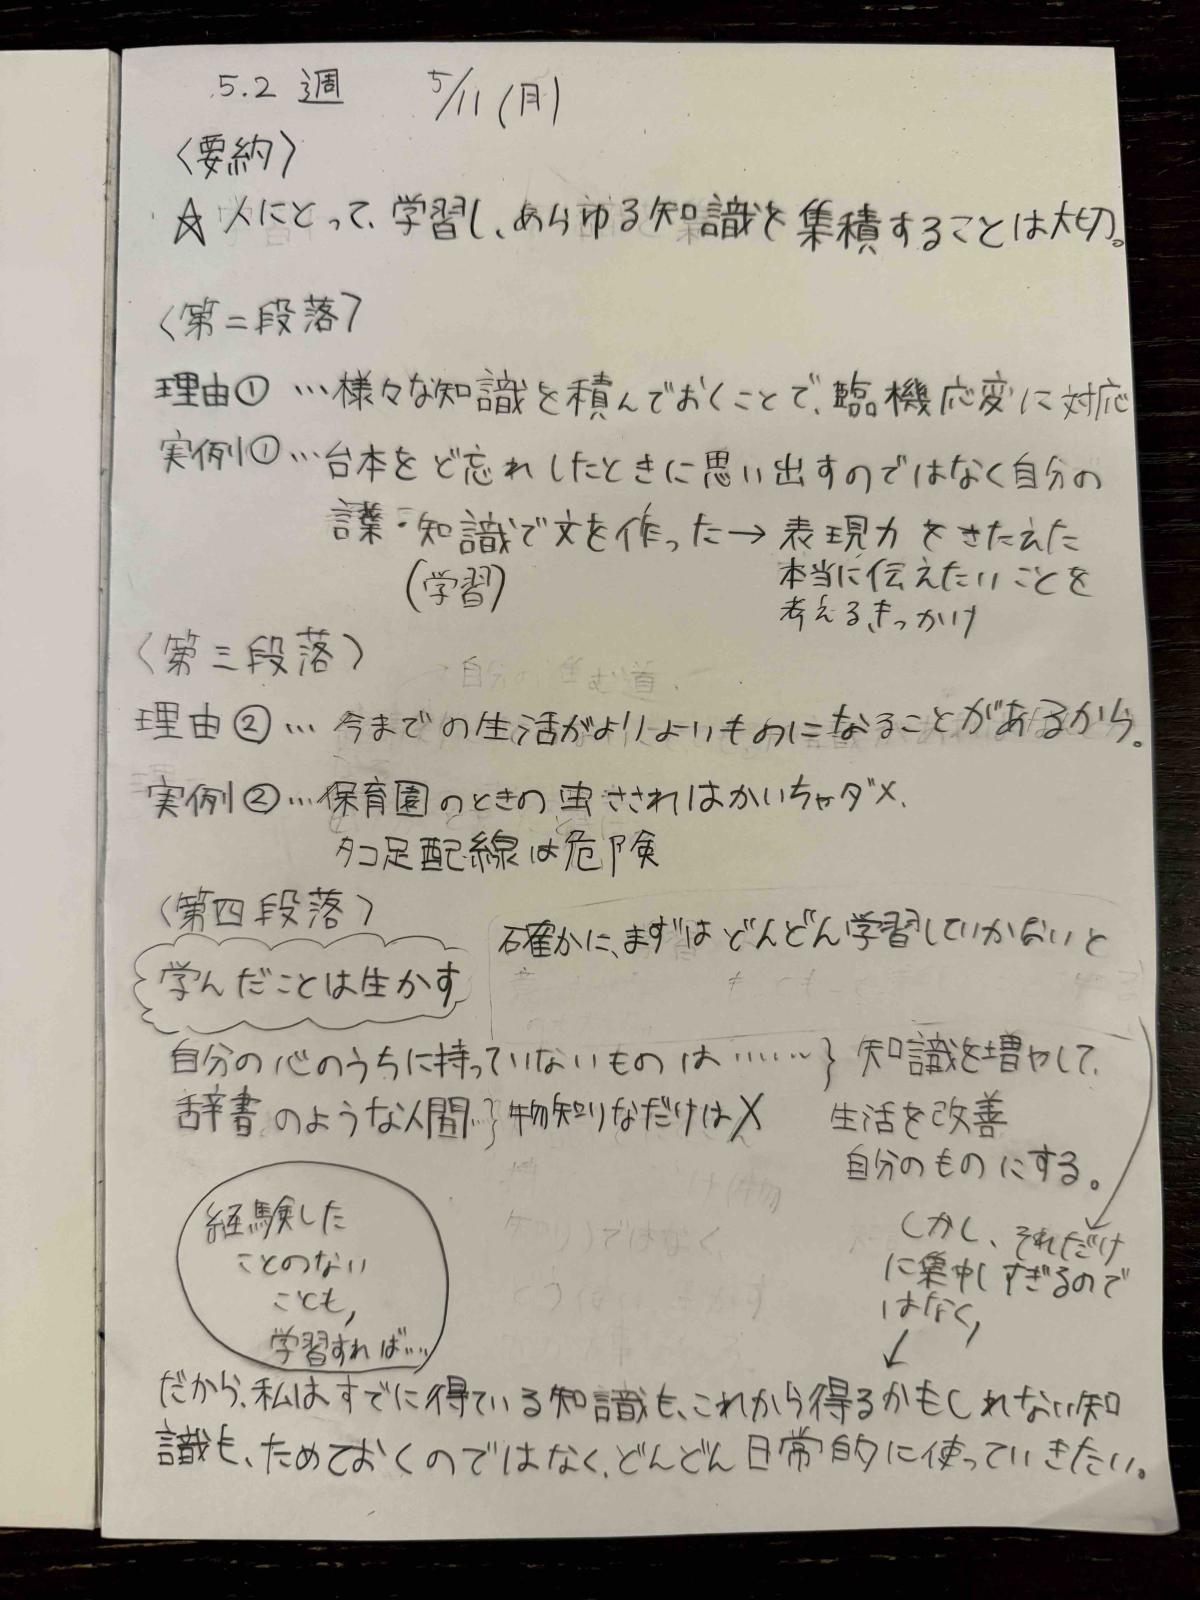 5.2 週 5/11(月)
〈要約〉
☆人にとって、学習し、あらゆる知識を集積することは大切。
〈第二段落〉
理由①…様々な知識を積んでおくことで、臨機応変に対応
実例①…台本をど忘れしたときに思い出すのではなく自分の
言葉・知識で文を作った→表現力をきたえた
(学習)
本当に伝えたいことを
考える、きっかけ
〈第三段落〉
自分の進む道
理由②…今までの生活がよりよいものになることがあるから。
実例②…保育園のときの虫さされはかいちゃダメ、
タコ足配線は危険
〈第四段落〉
学んだことは生かす
確かに、まずはどんどん学習していかないと
自分の心のうちに持っていないものは……}
知識を増やして、
辞書のような人間}物知りなだけは✕
生活を改善
自分のものにする。
経験した
ことのない
ことも、
学習すれば…
しかし、それだけ
に集中しすぎるので
はなく、
だから、私はすでに得ている知識も、これから得るかもしれない知
識も、ためておくのではなく、どんどん日常的に使っていきたい。